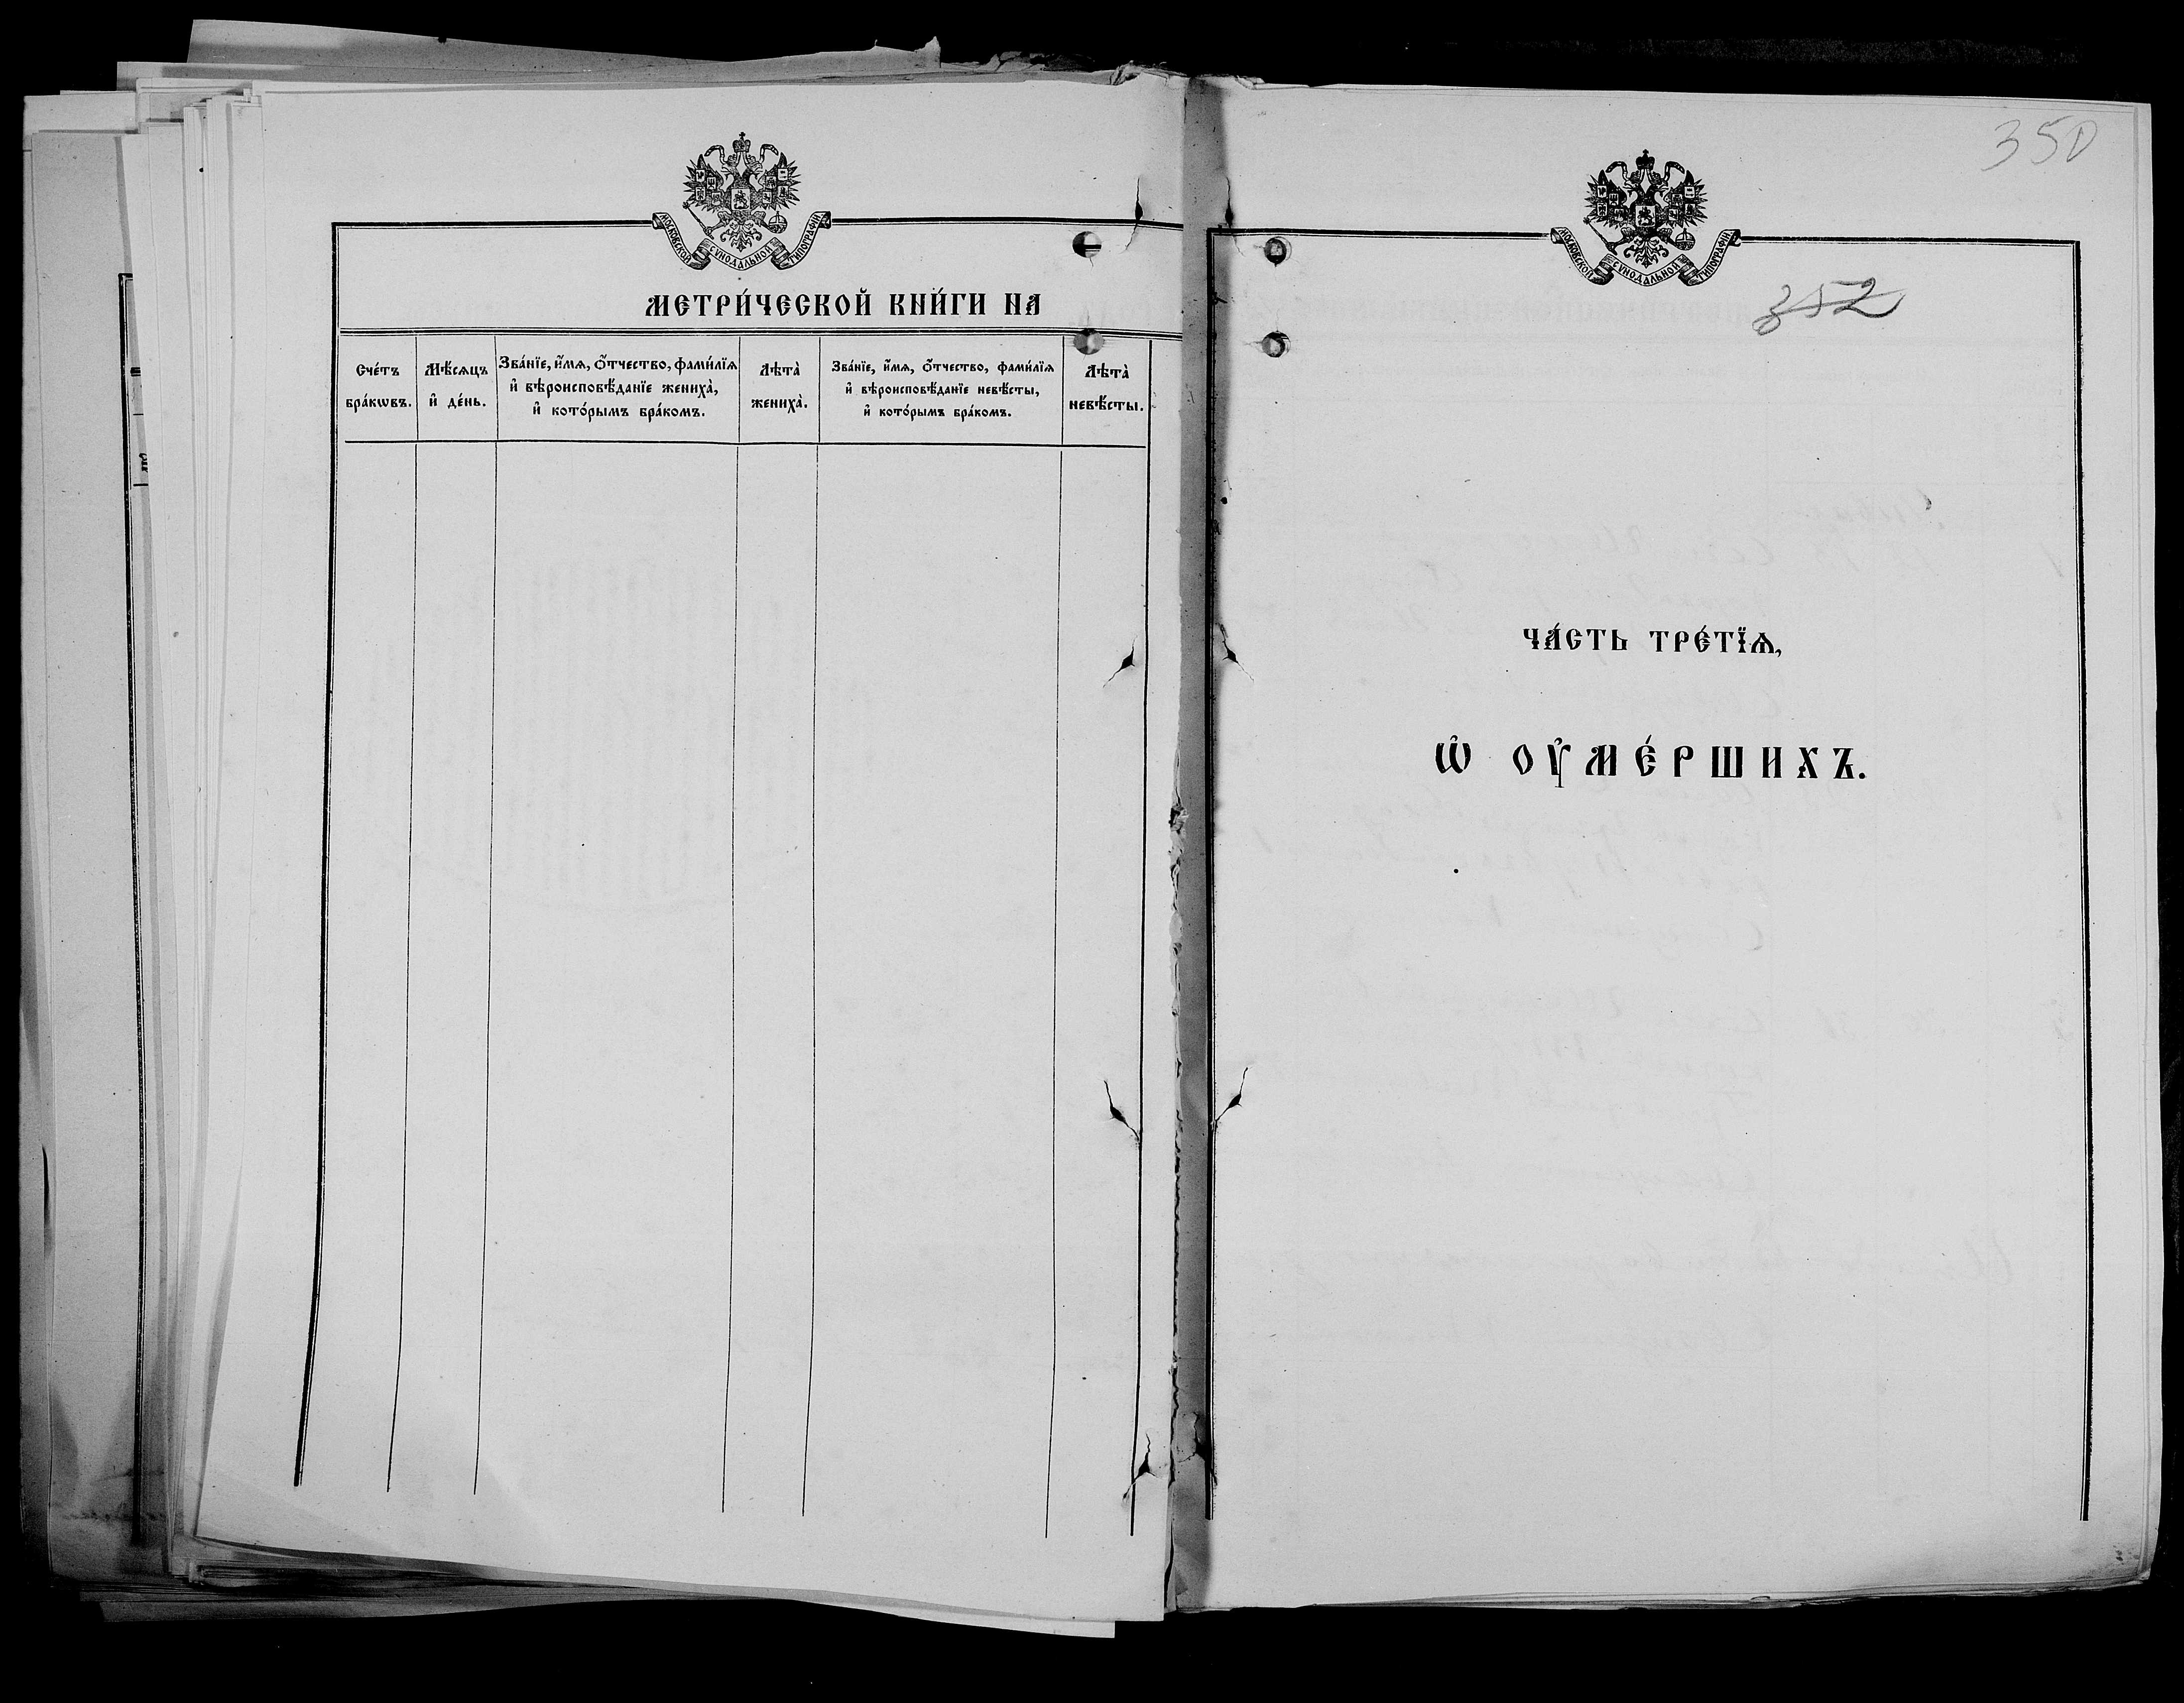 МОСКОВСКОЙ СѴНОДАЛЬНОЙ ТИПОГРАФІИ
МЕТРИ́ЧЕСКОЙ КНИ́ГИ НА
Сче́тъ
бра́кѡвъ.
Мѣ́сѧцъ
и҆ де́нь.
Зва́нїе, и҆́мѧ, ѻ҆́тчество, фами́лїѧ
и҆ вѣроисповѣ́данїе жениха̀,
и҆ кото́рымъ бра́комъ.
Лѣта̀
жениха̀.
Зва́нїе, и҆́мѧ, ѻ҆́тчество, фами́лїѧ
и҆ вѣроисповѣ́данїе невѣ́сты,
и҆ кото́рымъ бра́комъ.
Лѣта̀
невѣ́сты.
350
МОСКОВСКОЙ СѴНОДАЛЬНОЙ ТИПОГРАФІИ
352
ЧА́СТЬ ТРЕ́ТЇѦ,
Ѡ҆ ОУ҆МЕ́РШИХЪ.